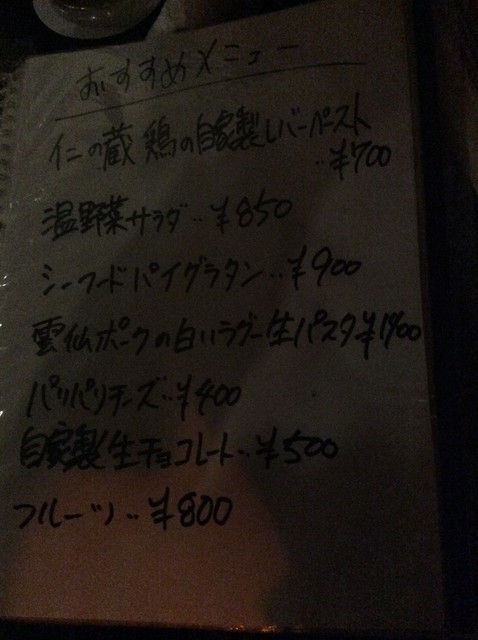 おすすめメニュー
仁の蔵 鶏の自家製レバーペースト
‥¥700
温野菜サラダ‥¥850
シーフードパイグラタン‥¥900
雲仙ポークの白いラグー生パスタ
パリパリチーズ‥¥400
自家製生チョコレート‥¥500
フルーツ‥¥800